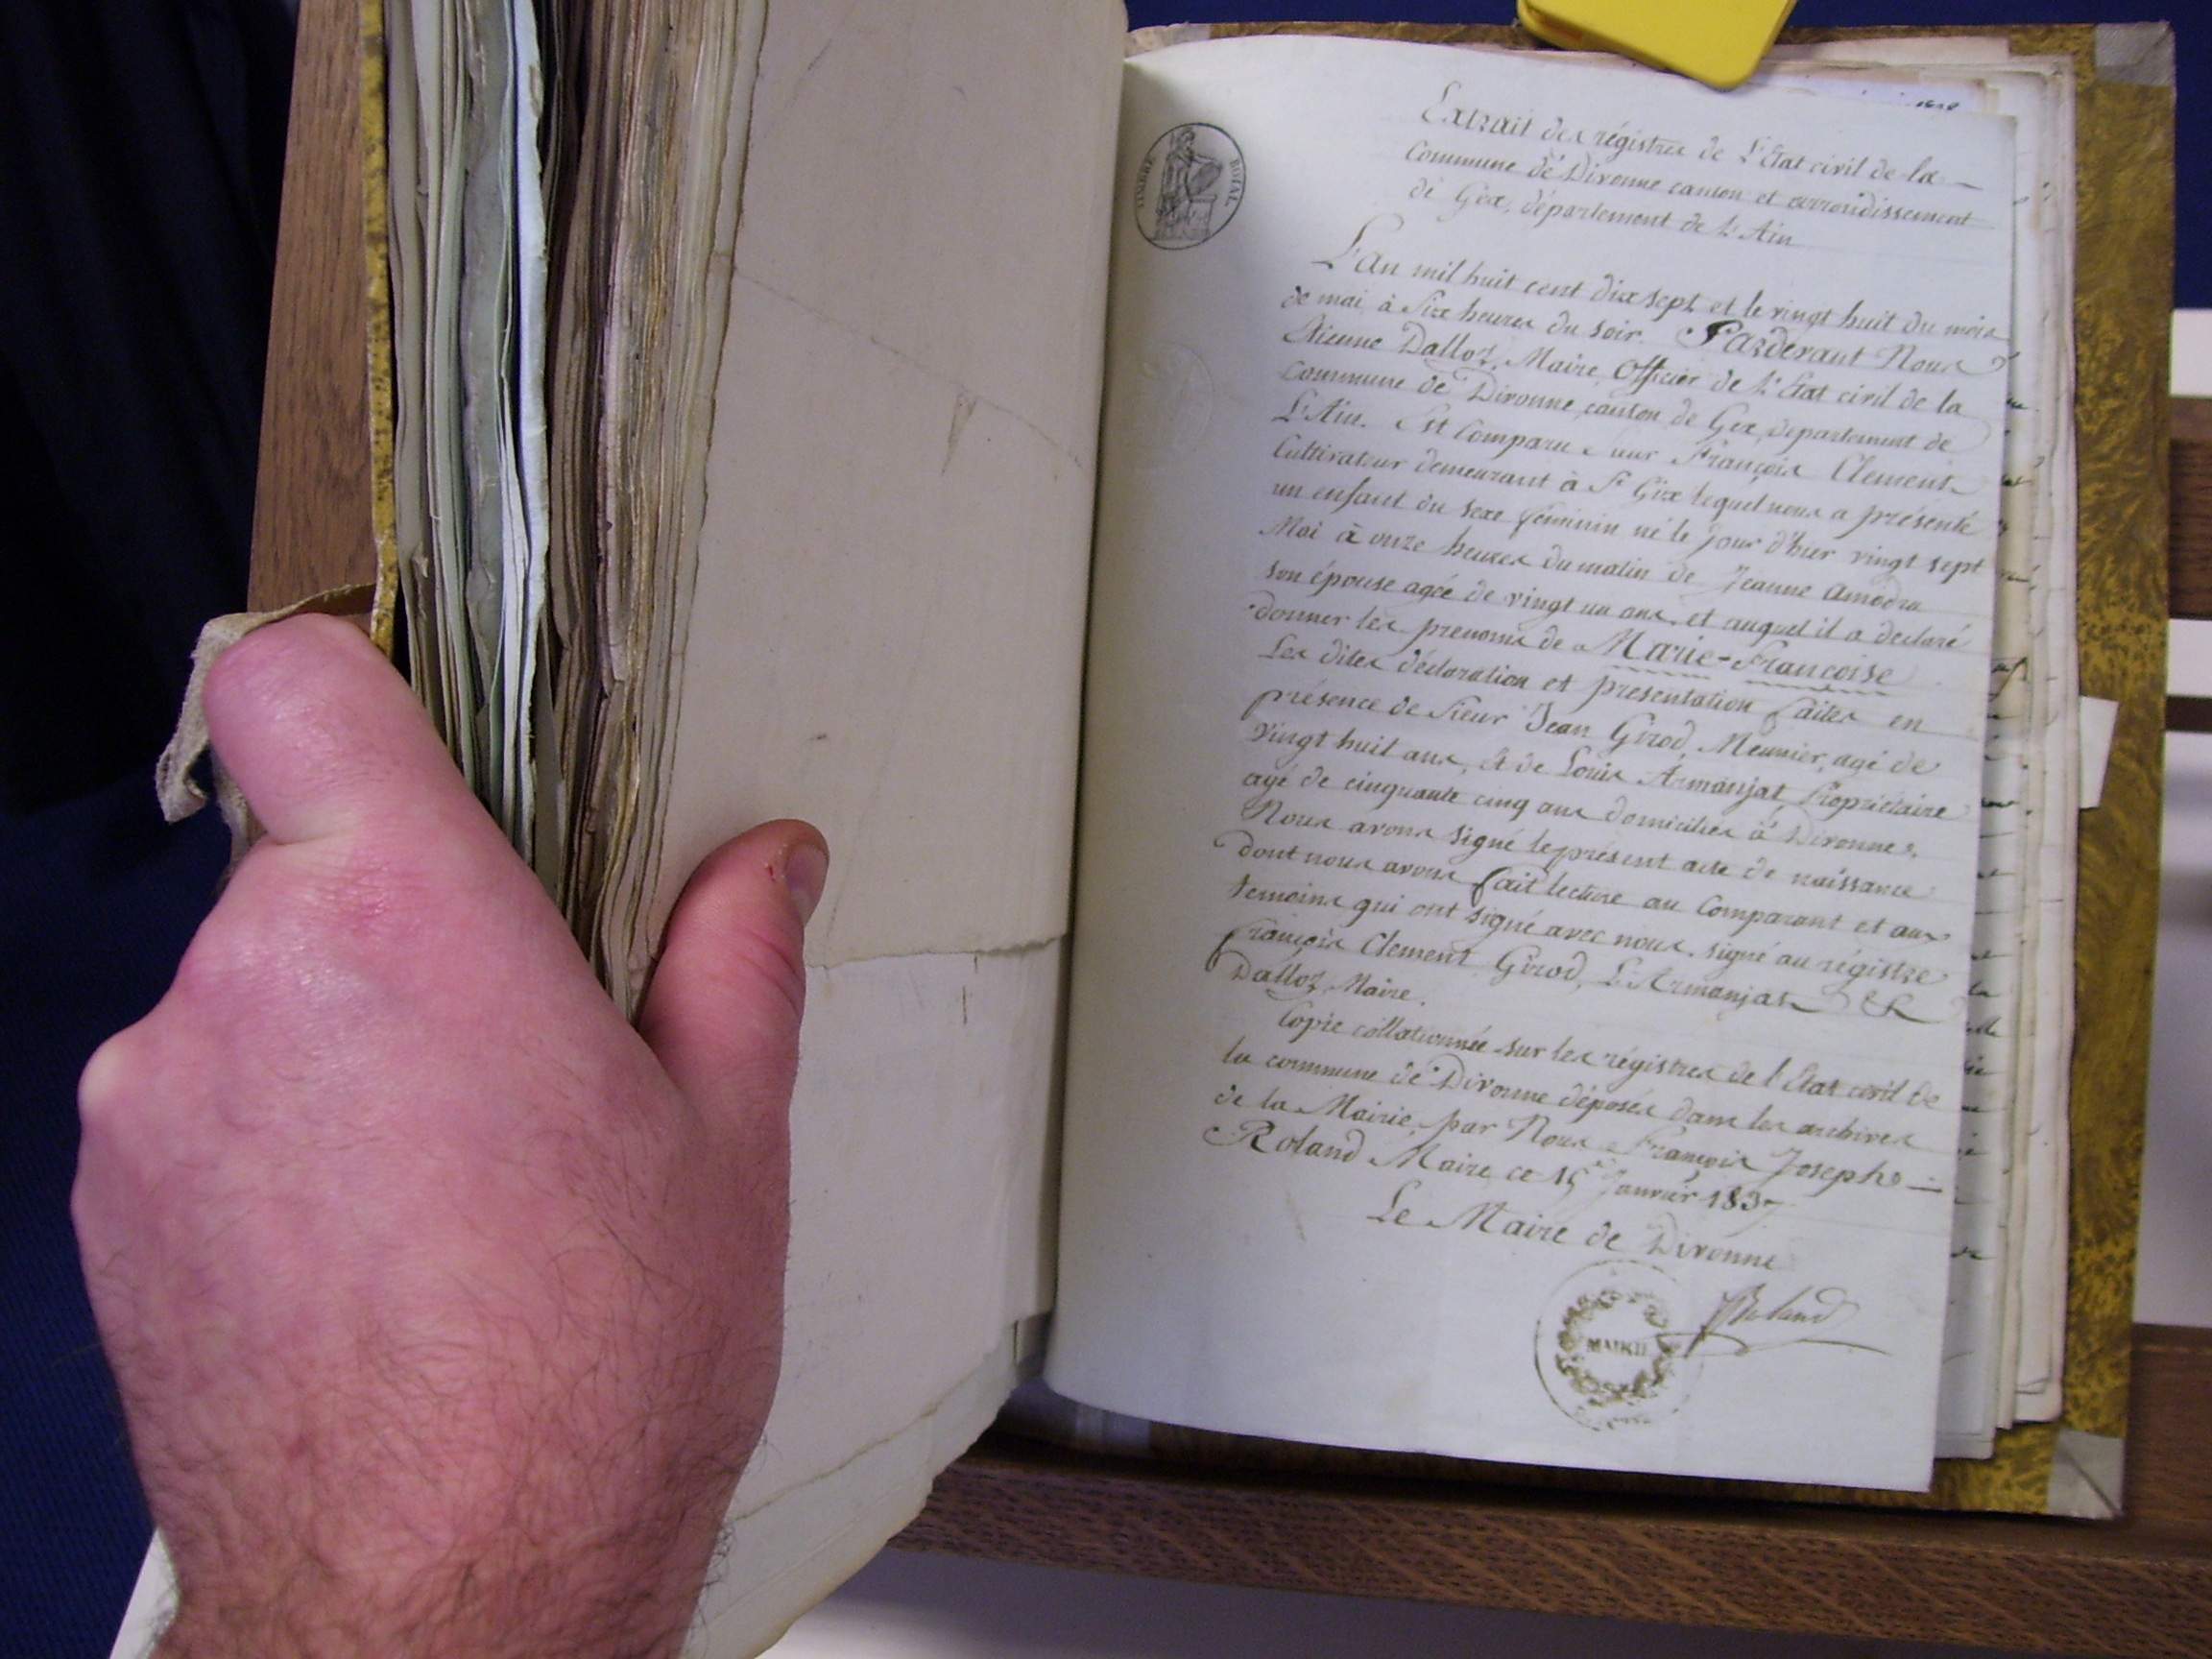 TIMBRE ROYAL.
Extrait des régistres de L'Etat civil de la
Commune de Divonne canton et arrondissement
de Gex, département de L'Ain
L'an mil huit cent dix sept et le vingt huit du mois
de mai à Six heures du soir. Pardevant Nous
Etienne Dalloz, Maire Officier de L'Etat civil de la
Commune de Divonne, canton de Gex, département de
L'Ain. Est Comparu Sieur François Clement
Cultivateur demeurant à St Gix lequel nous a présenté
un enfant du sexe féminin né le jour d'hier vingt sept
Mai à onze heures du matin de Jeanne Amodru
son épouse agée de vingt un ans, et auquel il a déclaré
donner les prenoms de Marie-Francoise
Les dites déclaration et présentation faites en
présence de Sieur Jean Girod, Meunier, agé de
vingt huit ans, et de Louis Armanjat, Propriétaire
agé de cinquante cinq ans domiciliés à Divonne.
Nous avons signé le présent acte de naissance
dont nous avons fait lecture au Comparant et aux
temoins qui ont signé avec nous. signé au régistre
François Clement Girod, L. Armanjat &
Dalloz Maire.
Copie collationnée sur les régistres de l'Etat civil de
la commune de Divonne déposés dans les archives
de la Mairie, par Nous François Joseph
Roland Maire, ce 15 Janvier 1837
Le Maire de Divonne
Roland
MAIRIE